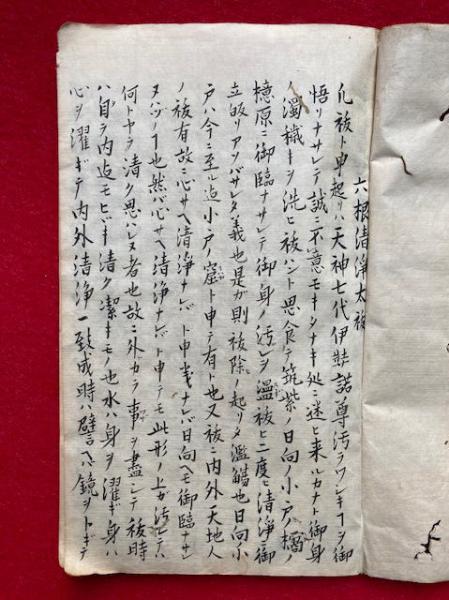 六根清浄太祓
凡祓ト申起リハ天神七代伊弉諾尊汚ラワシキヿヲ御
悟リナサレテ誠ニ不意モキタナキ処ニ迷ヒ来ルカナト御身
ノ濁穢キヲ洗ヒ祓ハント思食テ筑紫ノ日向ノ小戸ノ橘ノ
檍原ニ御臨ナサレテ御身ノ汚レヲ温祓ヒ二度ヒ清浄ニ御
立皈リアソバサレタ義也是ガ則祓除ノ起リタ濫觴也日向ノ小
戸ハ今ニ至ル迠小戸ノ窟ト申テ有ト也又祓ニ内外天地人
ノ祓有故ニ心サヘ清浄ナレバト申義ナレバ日向ヘモ御臨ナサレ
ヌハヅノヿ也然バ心サヘ清浄ナレバト申テモ此形ノ上ガ汚レテハ
何トヤラ清ク思ハレヌ者也故ニ外カラ事ヲ盡シテ祓時
ハ自ラ内迠モヒヾキ清ク潔キモノ也水ハ身ヲ濯ギ身ハ
心ヲ濯ギテ内外清浄一致成時ハ譬ヘバ鏡ヲトギテ